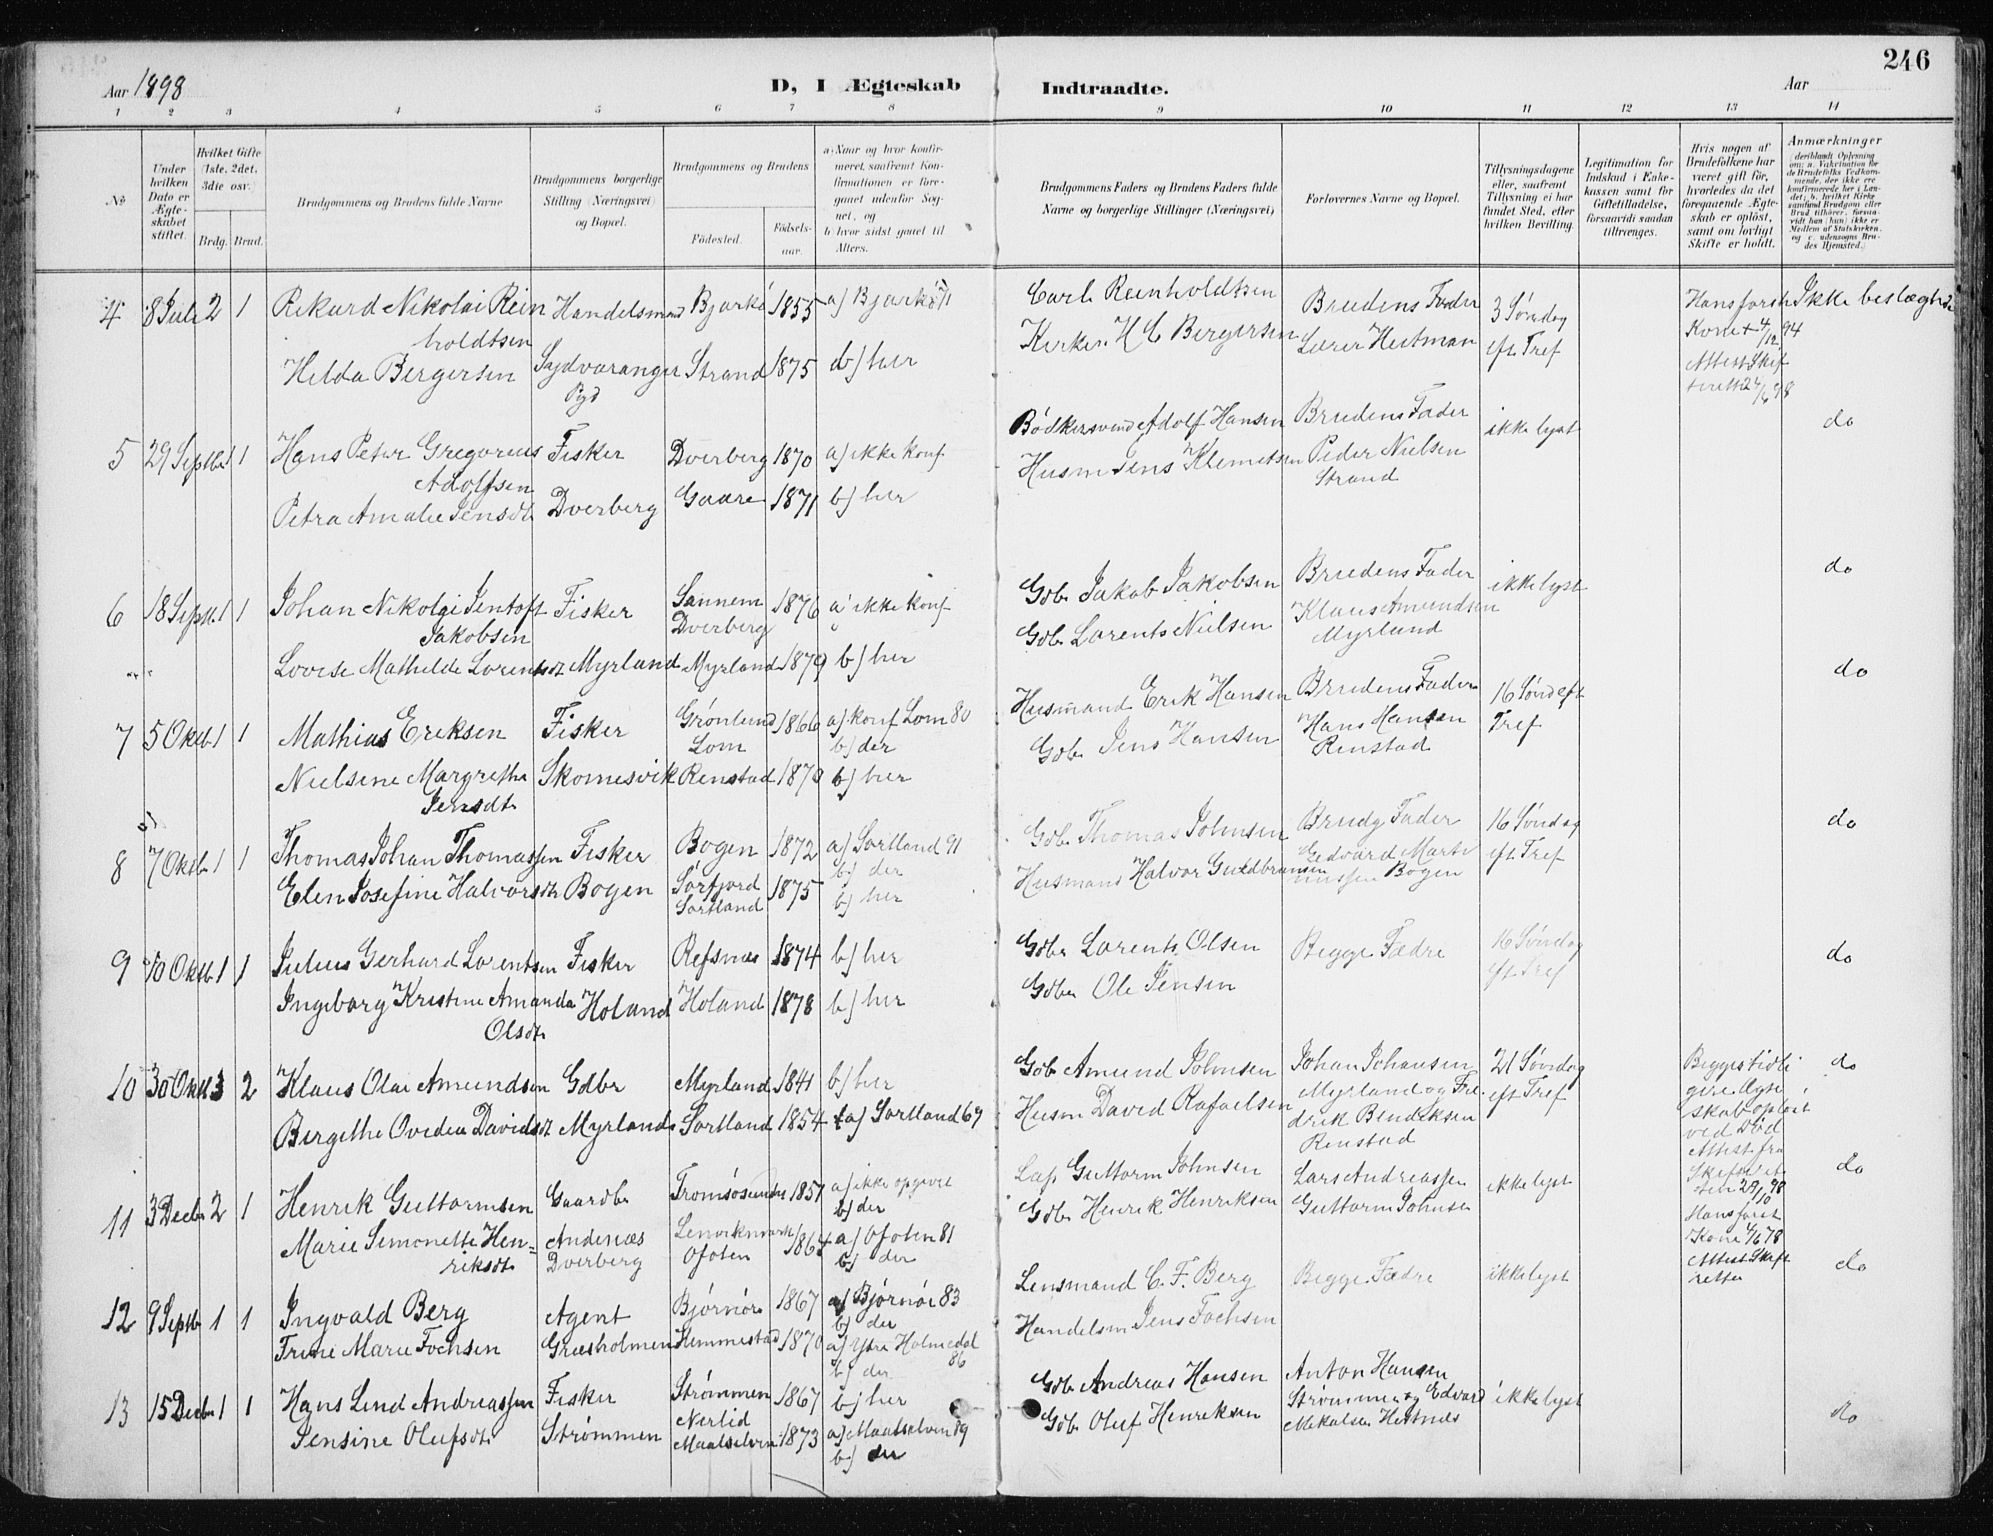 246
Aar 1898
D, I Ægteskab Indtraadte.
Aar
1 2 3 4 5 6 7 8 9 10 11 12 13 14
No
Under hvilken Dato er Ægteskabet stiftet.
Hvilket Gifte (1ste, 2det, 3die osv.)
Brdg. Brud.
Brudgommens og Brudens fulde Navne
Brudgommens borgerlige Stilling (Næringsvei) og Bopæl.
Brudgommens og Brudens
Fødested. Fødselsaar.
a) Naar og hvor konfirmeret, saafremt Konfirmationen er foregaaet udenfor Sognet, og
b hvor sidst gaaet til Alters.
Brudgommens Faders og Brudens Faders fulde Navne og borgerlige Stillinger (Næringsvei)
Forlovernes Navne og Bopæl.
Tillysningsdagene eller, saafremt Tillysning ei har fundet Sted, efter hvilken Bevilling.
Legitimation for Indskud i Enkekassen samt for Giftetilladelse, forsaavidt saadan tiltrænges.
Hvis nogen af Brudefolkene har været gift før, hvorledes da det foregaaende Ægteskab er opløst, samt om lovligt Skifte er holdt.
Anmærkninger
4 8 Juli 2 1 Rikard Nikolai Rein Handelsmand Bjarkø 1855 a) Bjarkø 71 Carl Reinholdtsen Brudens Fader 3 Søndag Hans forste Ikke beslægtede
holdtsen Kirkes. H C Bergersen Lærer Heitman eft Tref Kone + 4/12 94
Hilda Bergersen Sydvaranger Strand 1875 b) her Attest Skif
teretten 24/6 98
5 29 Septbr 1 1 Hans Peter Gregorius Fisker Dverberg 1870 a) ikke konf Bødkersvend Adolf Hansen Brudens Fader ikke lyst do
Adolfsen Husm Jens Klemetsen Peder Nielsen
Petra Amalie Jensdt Dverberg Gaare 1871 b) her Strand
6 18 Septb 1 1 Johan Nikolai Jentoft Fisker Sannem 1876 a) ikke konf Gdb. Jakob Jakobsen Brudens Fader ikke lyst do
Jakobsen Dverberg Gdb. Lorents Nielsen Klaus Amundsen
Lovise Mathilde Lorentsdt Myrland Myrland 1879 b) her Myrland
7 5 Oktb 1 1 Mathias Eriksen Fisker Grønlund 1866 a) konf Lom 80 Husmand Erik Hansen Brudens Fader 16 Sønd eft do
Lom b) der Gdb. Jens Hansen Hans Hansen Tref
Nielsine Margrethe Skomesvik Renstad b) her Renstad
Jensdt
8 7 Oktb. 1 1 Thomas Johan Thomassen Fisker Bogen 1872 a) Sortland 91 Gdb. Thomas Johnsen Brudg Fader 16 Søndag do
b) der Husmand Halvor Guldbransen Edvard Marti eft Tref
Elen Josefine Halvorsdt Bogen Sørfjord 1875 b) her nussen Bogen
Sortland
9 10 Oktb. 1 1 Julius Gerhard Lorentsen Fisker Refsnæs 1874 b) her Gdbr Lorents Olsen Begge Fædre 16 Søndag do
Ingeborg Kristine Amanda Holand Holand 1878 b) her Gdbr Ole Jensen eft Tref
Olsdt
10 30 Oktb 3 2 Klaus Olai Amundsen Gdbr Myrland 1841 b) her Gdb Amund Johnsen Johan Johansen 21 Søndag Begges tidli do
Birgithe Ovedia Davidsdt Myrland Sortland 1854 a) Sortland 69 Husm David Rafaelsen Myrland og Fre. eft Tref gere Ægte
drik Bendiksen skab opløst
Renstad ved Død
Attest fra
Skifteret
den 29/10 98
11 3 Decbr 2 1 Henrik Guttormsen Gaardbr Tromsøsundet 1851 a) ikke opgivet Lap Guttorm Johnsen Lars Andreassen ikke lyst do
b) der Gdb. Henrik Henriksen Guttorm Johnsen Hans forste
Marie Simonette Hen= Andenæs Lenvikmark 1864 a) Ofoten 81 Kone
riksdt Dverberg Ofoten b) der Attest Skift
retten
12 9 Septb 1 1 Ingvald Berg Agent Bjørnør 1867 a) Bjørnør 83 Lensmand C. F. Berg Begge Fædre ikke lyst do
b) der Handelsm Jens Fochsen
Trine Marie Fochsen Græsholmen Hemmestad 1870 a) Ytre Holmedal
b) der 86
13 15 Decbr 1 1 Hans Lind Andreassen Fisker Strømmen 1867 b) her Gdb. Andreas Hansen Anton Hansen ikke lyst do
Jensine Olufsdt Strømmen Nerlid 1873 a) Maalselven 89 Gdb. Oluf Henriksen Strømmen og Edvard
Maalselven b) der Mikalsen Hestnes